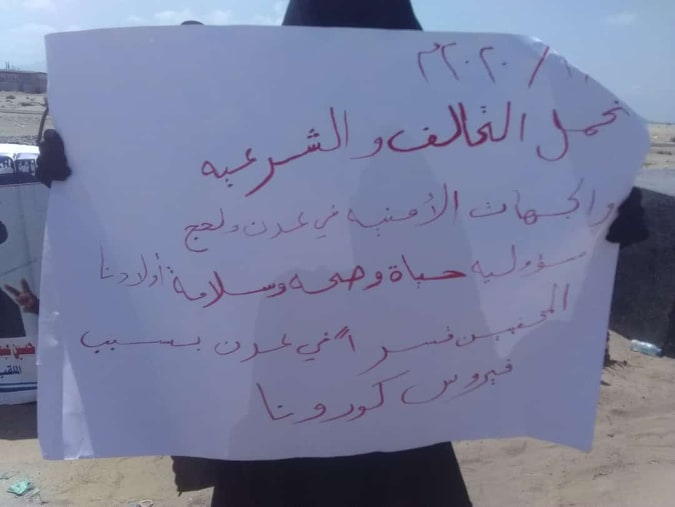 /٢٠٢٠م
نحمل التحالف والشرعيه
والجهات الأمنيه في عدن ولحج
مسؤوليه حياة وصحه وسلامة أولادنا
المخفيين قسراً في عدن بسبب
فيروس كورونا
حسين
الملقب